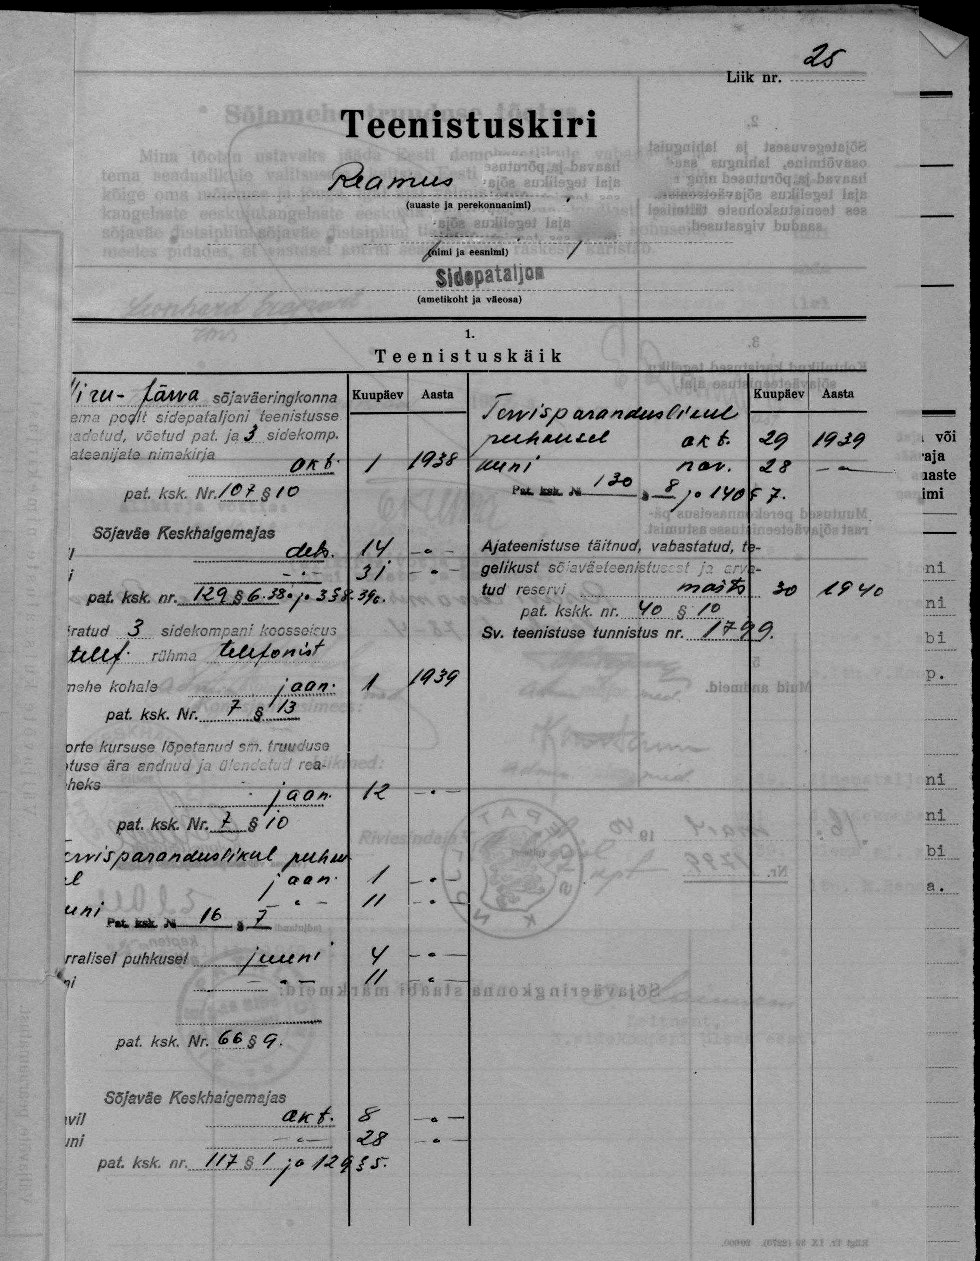 Liik nr. 25
Teenistuskiri
Reamus
(auaste ja perekonnanimi)
(nimi ja eesnimi)
Sidepataljon
(ametikoht ja väeosa)
1.
Teenistuskäik
Kuupäev Aasta
Viru-Järva sõjaväeringkonna
ema poolt sidepataljoni teenistusse
adetud, võetud pat. ja 3 sidekomp.
ateenijate nimekirja
okt. 1 1938
pat. ksk. Nr. 107 § 10
Sõjaväe Keskhaigemajas
dets. 14 -"-
i -"- 31 -"-
pat. ksk. nr. 129 § 6.38. ja 3 § 8.39a.
iratud 3 sidekompani koosseisus
telef. rühma telefonist
mehe kohale jaan. 1 1939
pat. ksk. Nr. 7 § 13
orte kursuse lõpetanud sm. truuduse
otuse ära andnud ja ülendatud rea-
heks
jaan. 12 -"-
pat. ksk. Nr. 7 § 10
ervisparanduslikul puhku
el jaan. 1 -"-
uni -"- 11 -"-
Pat. ksk. № 16 § 7
rralisel puhkusel juuni 4 -"-
ni -"- 11 -"-
pat. ksk. Nr. 66 § 9.
Sõjaväe Keskhaigemajas
vil okt. 8 -"-
uni -"- 28 -"-
pat. ksk. nr. 117 § 1 ja 129 § 5.
Kuupäev Aasta
Tervisparanduslikul
puhkusel okt. 29 1939
kuni nov. 28 -"-
Pat. ksk. № 130 § 8 ja 140 § 7.
Ajateenistuse täitnud, vabastatud, te-
gelikust sõjaväeteenistusest ja arva-
tud reservi märts 30 1940
pat. kskk. nr. 40 § 10
Sv. teenistuse tunnistus nr. 1799.
või
raja
maste
imi
ni
ni
bi
p.
ni
ni
bi
a.